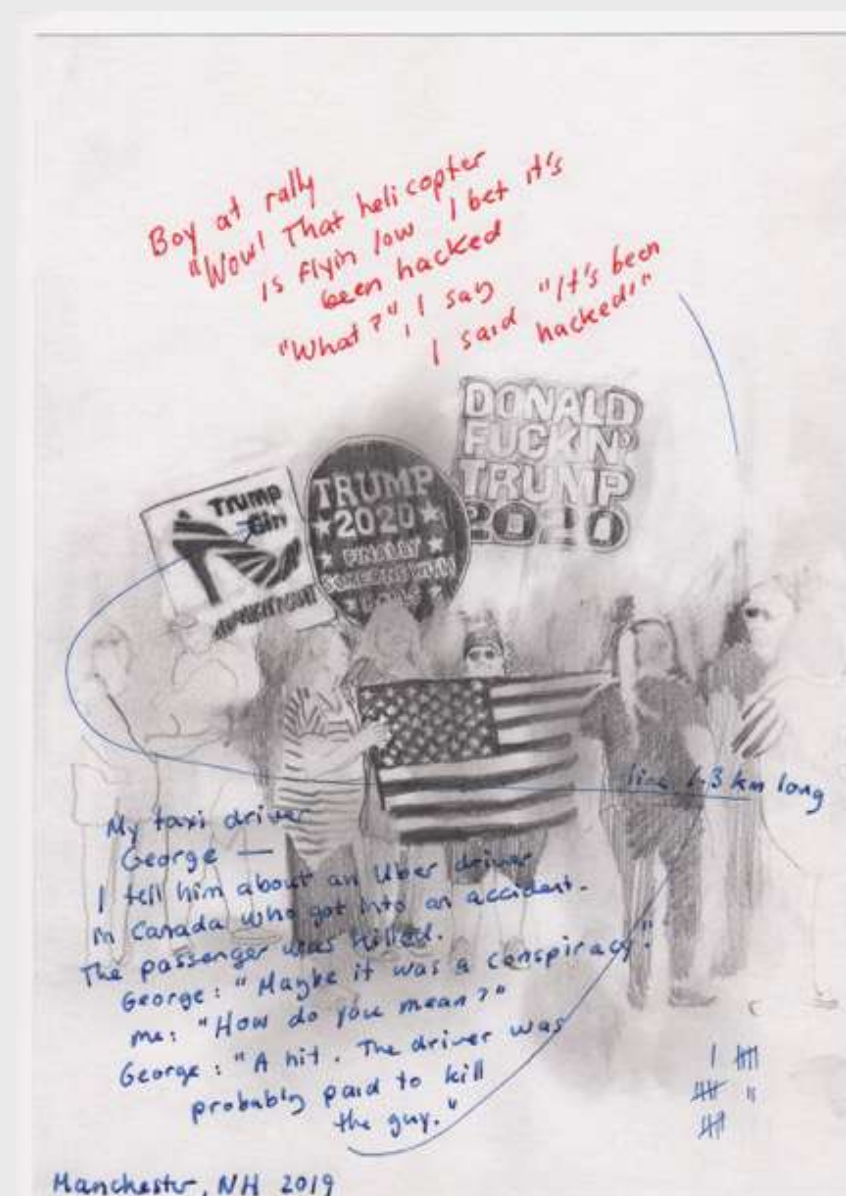 Boy at rally
"Wow! That helicopter
is flyin low I bet it's
been hacked
"What?", I say
I said "It's been
hacked!"
DONALD
FUCKN'
TRUMP
2020
Trump
Girl
TRUMP
2020
FINALLY
SOMEONE WITH
line 1.3 km long
My taxi driver
George —
I tell him about an Uber driver
in Canada who got into an accident.
The passenger was killed.
George: "Maybe it was a conspiracy."
me: "How do you mean?"
George: "A hit. The driver was
probably paid to kill
the guy."
Manchester, NH 2019